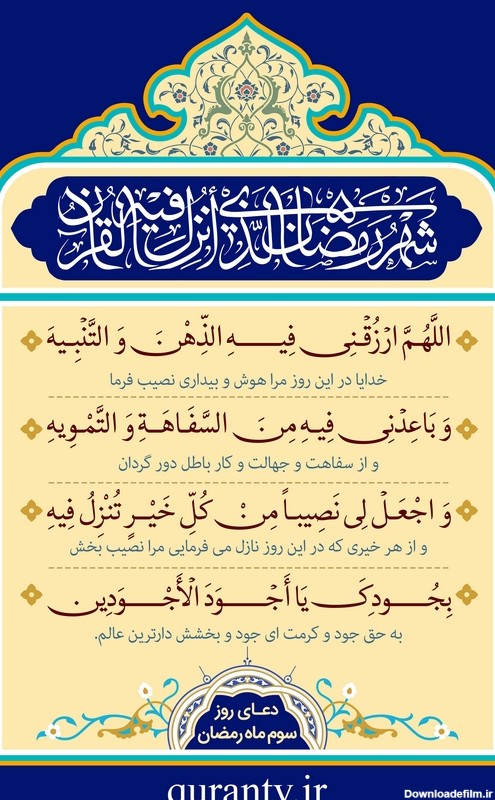 شَهْرُ رَمَضَانَ الَّذِي أُنْزِلَ فِيهِ الْقُرْآنُ
اللَّهُمَّ ارْزُقْنِي فِيهِ الذِّهْنَ وَ التَّنْبِيهَ
خدایا در این روز مرا هوش و بیداری نصیب فرما
وَ بَاعِدْنِي فِيهِ مِنَ السَّفَاهَةِ وَ التَّمْوِيهِ
و از سفاهت و جهالت و کار باطل دور گردان
وَ اجْعَلْ لِي نَصِيباً مِنْ كُلِّ خَيْرٍ تُنْزِلُ فِيهِ
و از هر خیری که در این روز نازل می فرمایی مرا نصیب بخش
بِجُودِكَ يَا أَجْوَدَ الْأَجْوَدِينَ
به حق جود و کرمت ای جود و بخشش دارترین عالم.
دعای روز
سوم ماه رمضان
qurantv.ir
Downloadefilm.ir